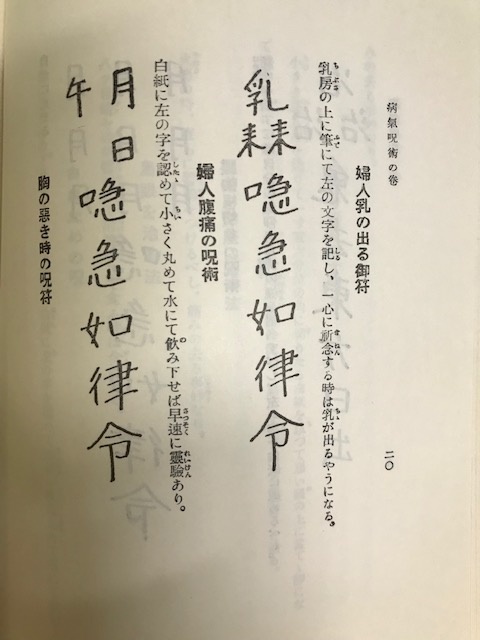 病氣呪術の巻
二〇
婦人乳の出る御符
乳房の上に筆にて左の文字を記し、一心に祈念する時は乳が出るやうになる。
婦人腹痛の呪術
白紙に左の字を認めて小さく丸めて水にて飲み下せば早速に靈驗あり。
月日喼急如律令
午
胸の惡き時の呪符